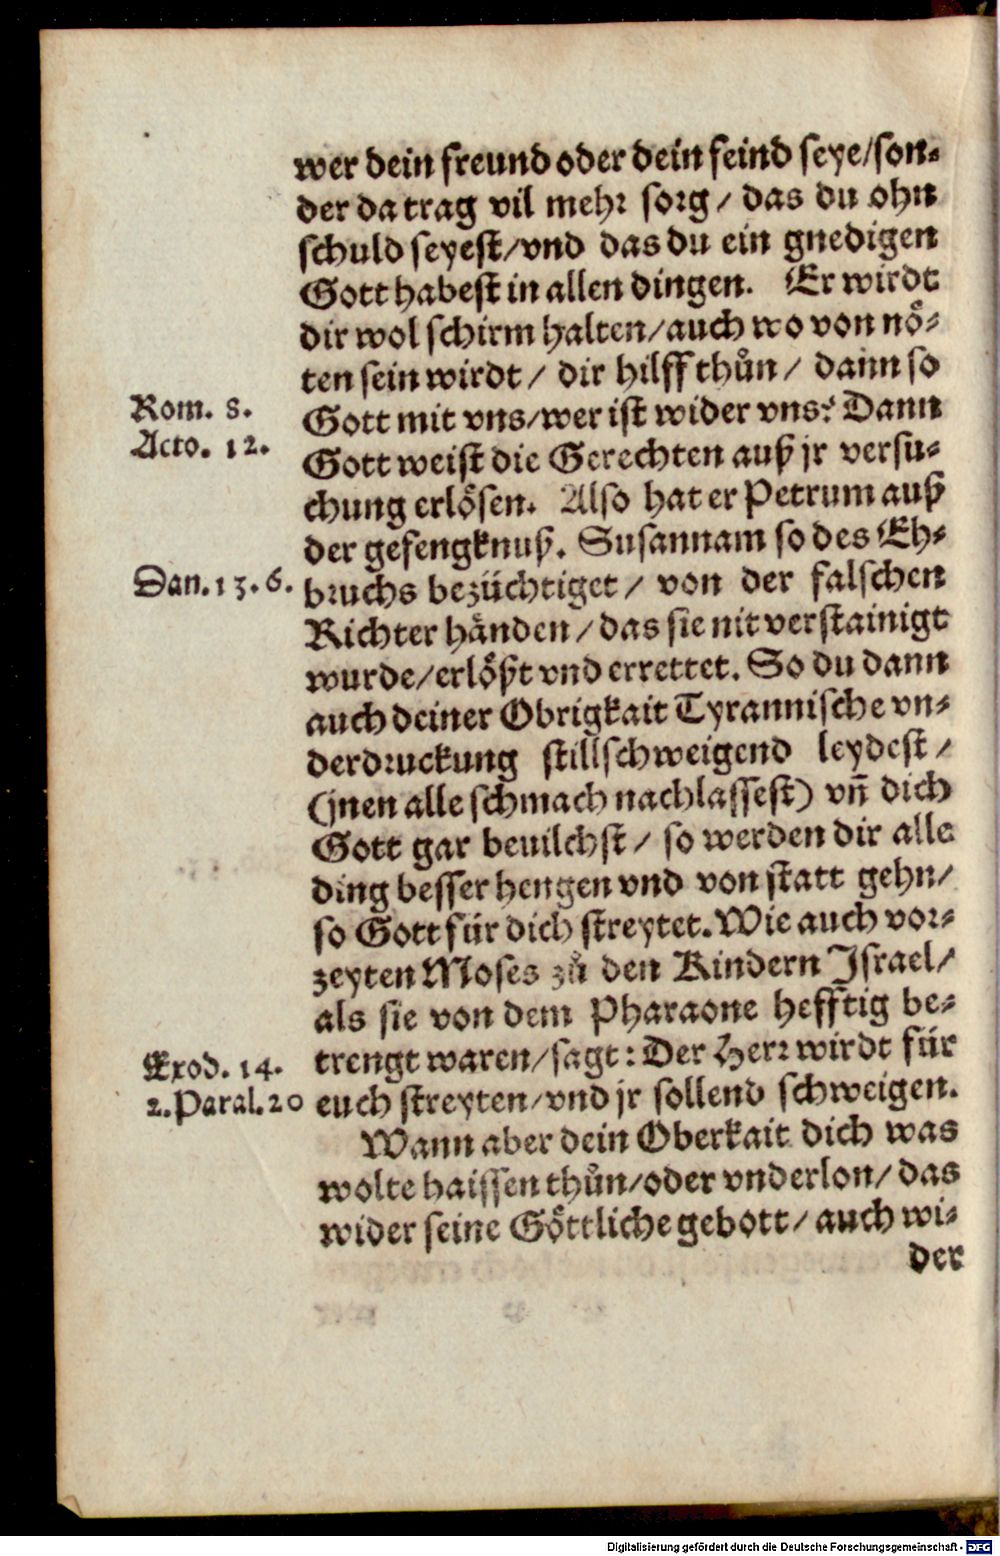 wer dein freund oder dein feind seye/son-
der da trag vil mehr sorg/ das du ohn
schuld seyest/vnd das du ein gnedigen
Gott habest in allen dingen. Er wirdt
dir wol schirm halten/auch wo von nö-
ten sein wirdt/ dir hilff thůn/ dann so
Rom. 8. Gott mit vns/wer ist wider vns? Dann
Acto. 12. Gott weist die Gerechten auß jr versu-
chung erlösen. Also hat er Petrum auß
der gefengknuß. Susannam so des Eh-
Dan. 13. 6. bruchs bezüchtiget/ von der falschen
Richter händen/das sie nit verstainigt
wurde/erlößt vnd errettet. So du dann
auch deiner Obrigkait Tyrannische vn-
derdruckung stillschweigend leydest/
(jnen alle schmach nachlassest) vñ dich
Gott gar beuilchst/ so werden dir alle
ding besser hengen vnd von statt gehn/
so Gott für dich streytet. Wie auch vor-
zeyten Moses zů den Kindern Jsrael/
als sie von dem Pharaone hefftig be-
Exod. 14. trengt waren/sagt: Der Herr wirdt für
2. Paral. 20 euch streyten/vnd jr sollend schweigen.
Wann aber dein Oberkait dich was
wolte haissen thůn/oder vnderlon/das
wider seine Göttliche gebott/auch wi-
der
Digitalisierung gefördert durch die Deutsche Forschungsgemeinschaft - DFG